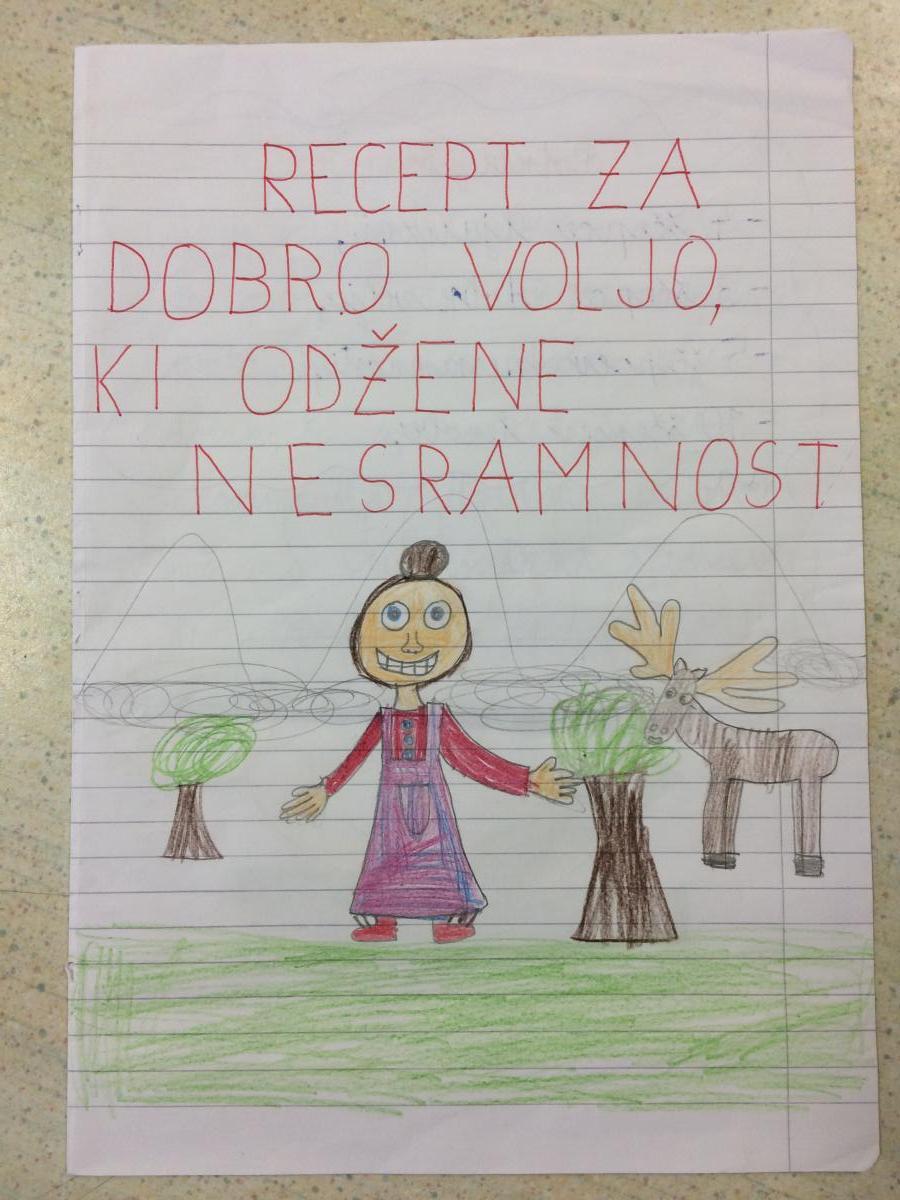 RECEPT ZA
DOBRO VOLJO,
KI ODŽENE
NESRAMNOST